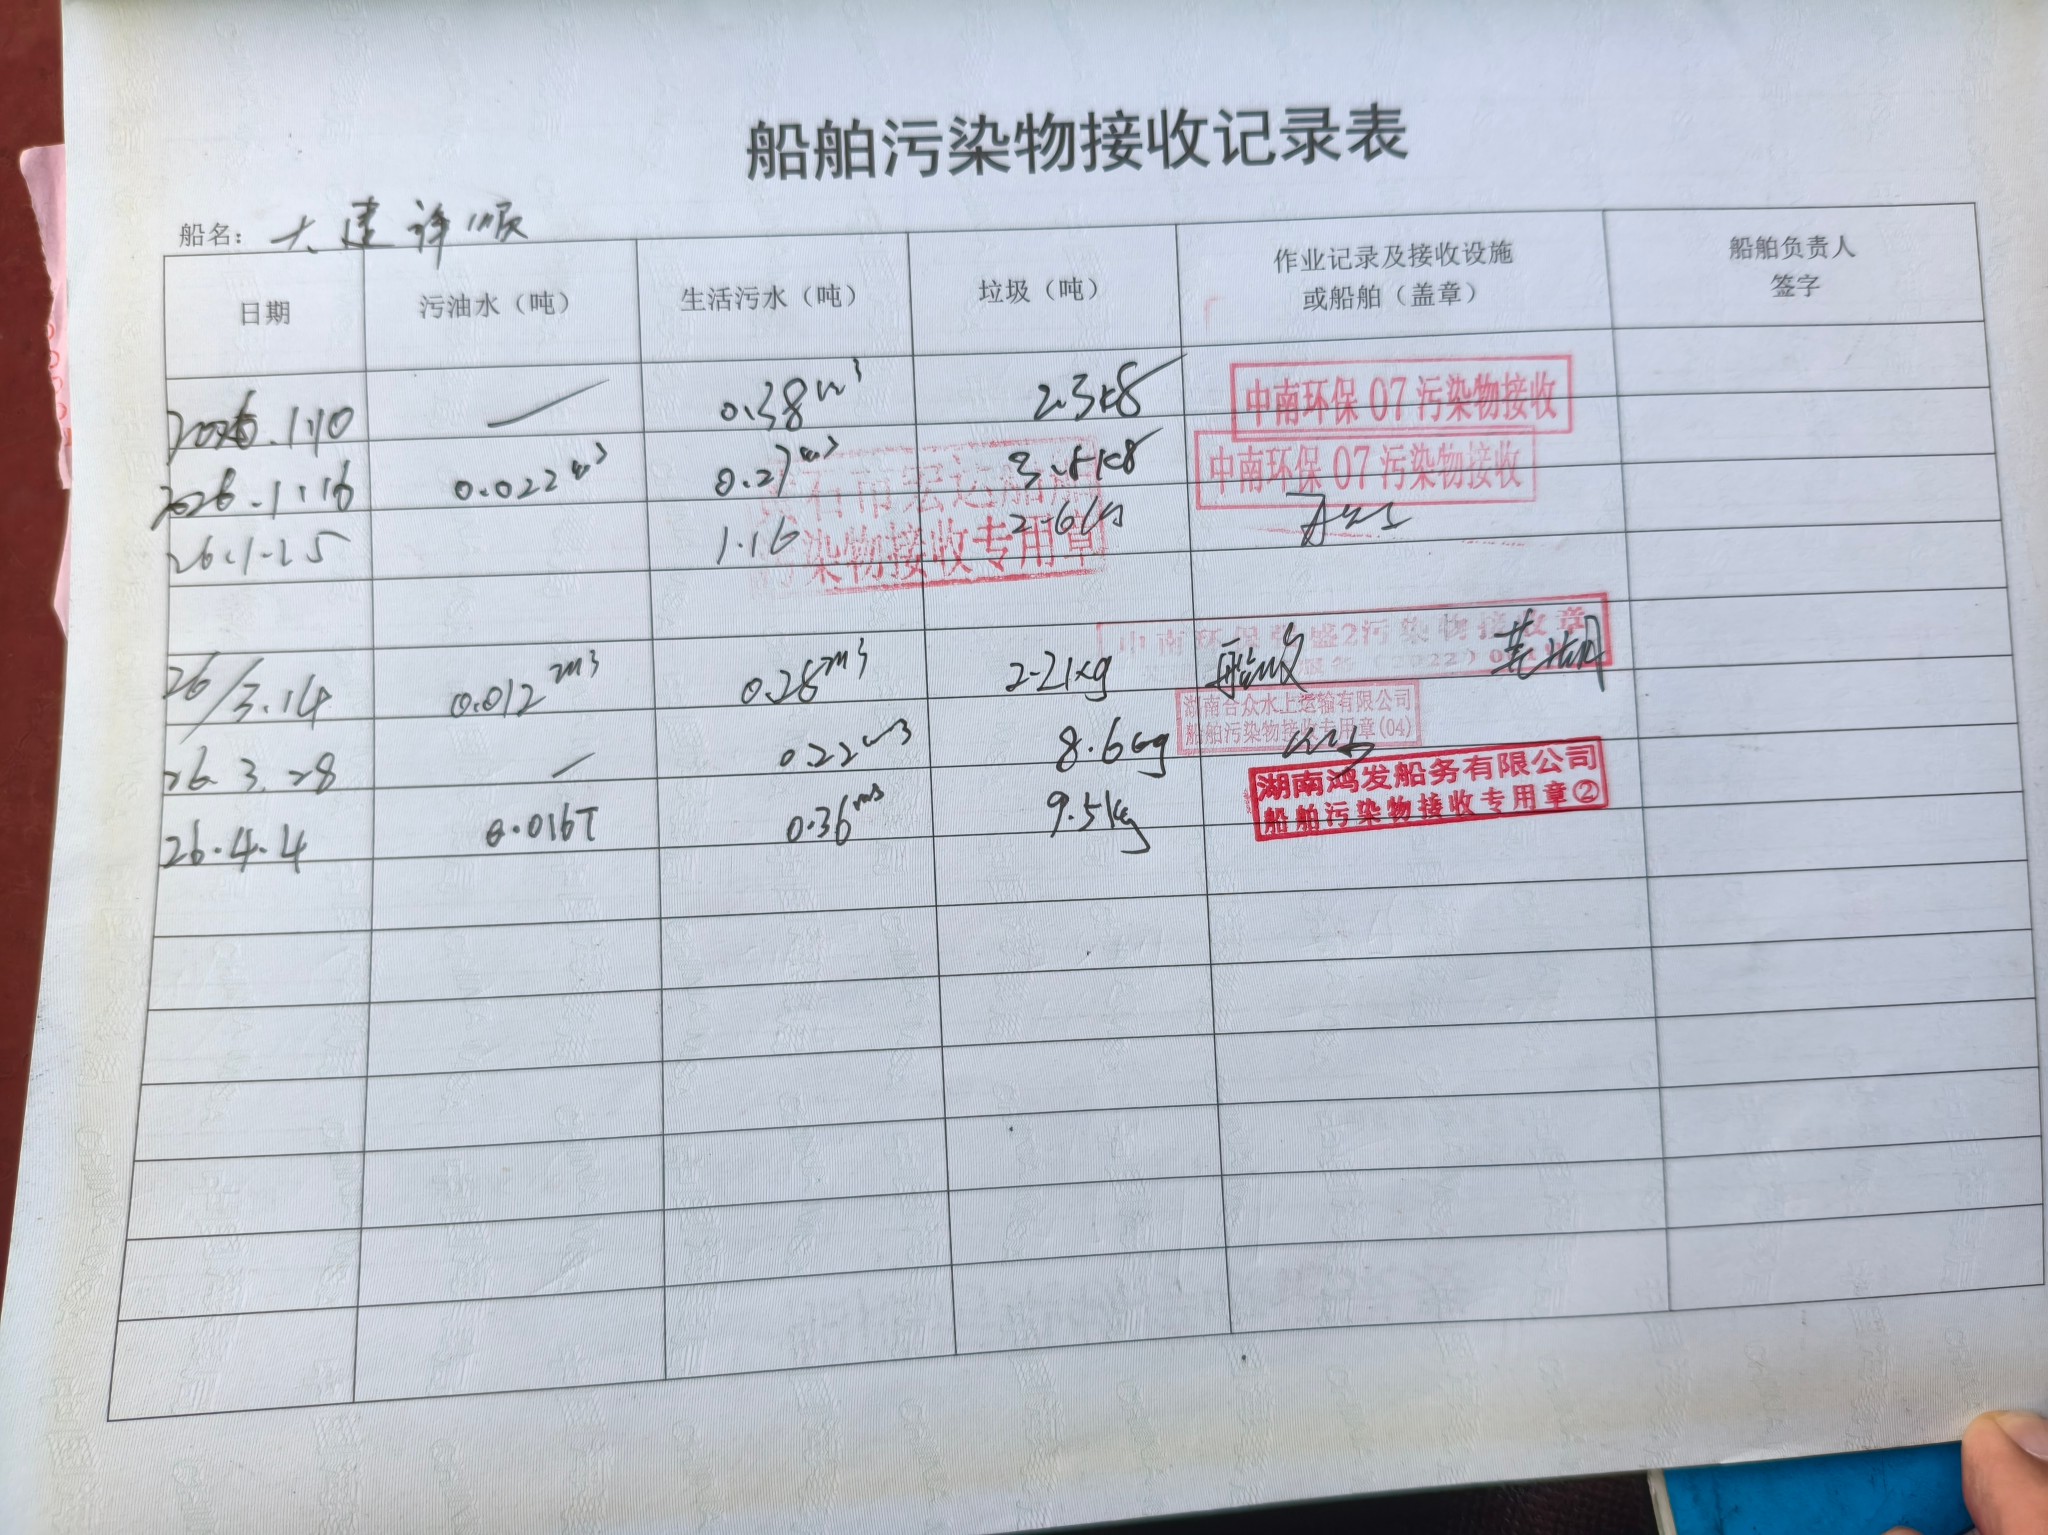 船舶污染物接收记录表
船名：大建祥顺
日期 污油水（吨） 生活污水（吨） 垃圾（吨） 作业记录及接收设施或船舶（盖章） 船舶负责人签字
2026.1.10 — 0.38m³ 2.3kg 中南环保 07 污染物接收
2026.1.16 0.022m³ 0.27m³ 3.5kg 中南环保 07 污染物接收
26.1.25 1.16 2.6kg
石市宏运船舶
染物接收专用章
26/3.14 0.012m³ 0.28m³ 2.21kg 中南环保 盛2污染物接收章
(2022)
26.3.28 — 0.22m³ 8.6kg 湖南合众水上运输有限公司
船舶污染物接收专用章(04)
26.4.4 0.016T 0.36m³ 9.5kg 湖南鸿发船务有限公司
船舶污染物接收专用章②